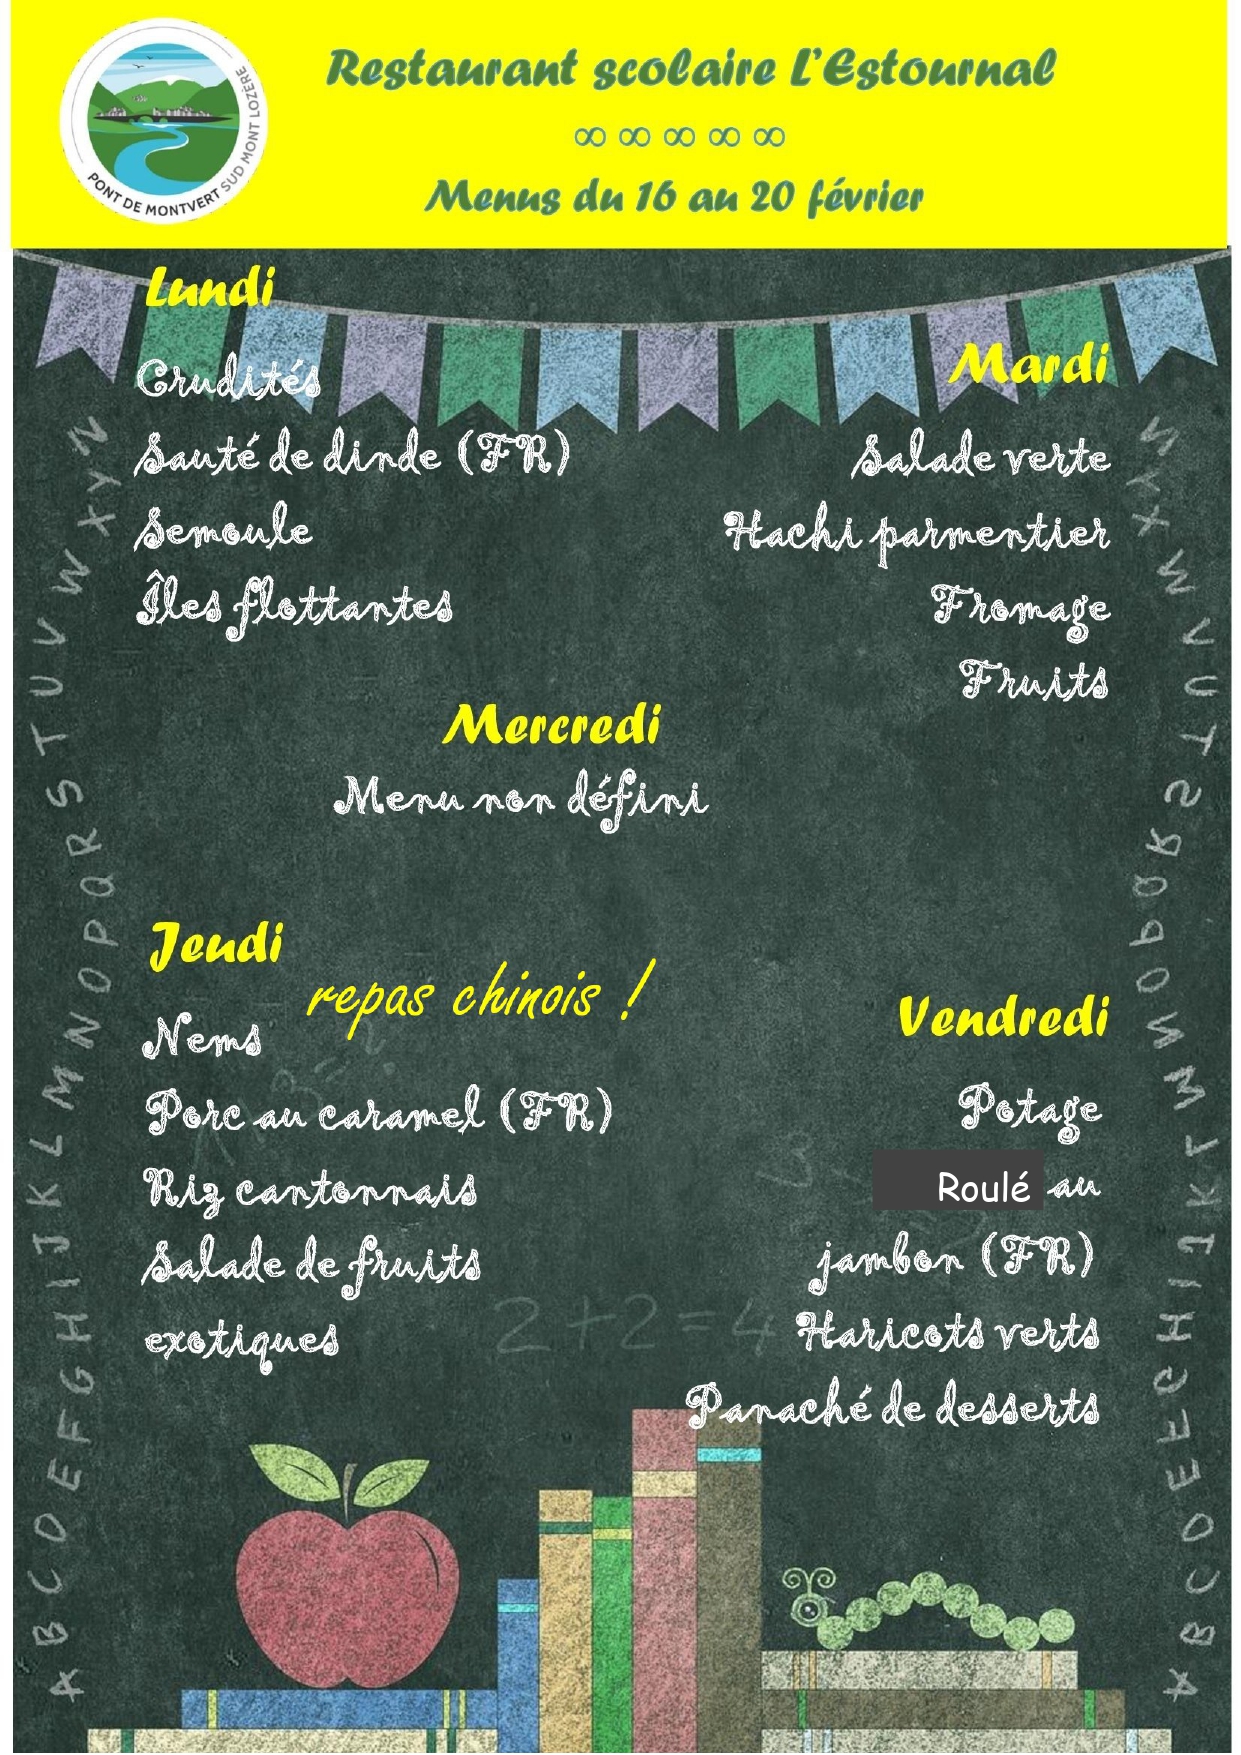 Restaurant scolaire L'Estournal
∞ ∞ ∞ ∞ ∞
Menus du 16 au 20 février
PONT DE MONTVERT SUD MONT LOZÈRE
Lundi
Crudités
Sauté de dinde (FR)
Semoule
Îles flottantes
Mardi
Salade verte
Hachi parmentier
Fromage
Fruits
Mercredi
Menu non défini
Jeudi
repas chinois !
Nems
Porc au caramel (FR)
Riz cantonnais
Salade de fruits
exotiques
Vendredi
Potage
Roulé au
jambon (FR)
Haricots verts
Panaché de desserts
2+2=4
A B C D E F G H I J K L M N O P Q R S T U V W X Y Z
A B C D E F G H I J K L M N O P Q R S T U V W X Y Z